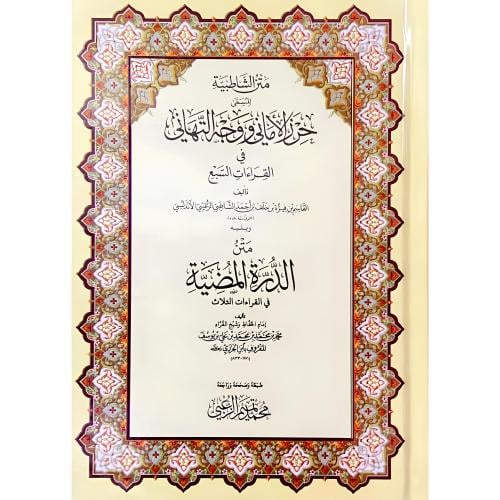 متن الشاطبية
المسمى
حرز الأماني ووجه التهاني
في
القراءات السبع
تأليف
القاسم بن فيره بن خلف بن أحمد الشاطبي الرعيني الأندلسي
ويليه
متن
الدرة المضية
في القراءات الثلاث
تأليف
إمام الحفاظ وشيخ القراء
محمد بن محمد بن محمد بن علي بن يوسف
المعروف بابن الجزري رحمه الله
ضبطه وصححه وراجعه
محمد تميم الزعبي